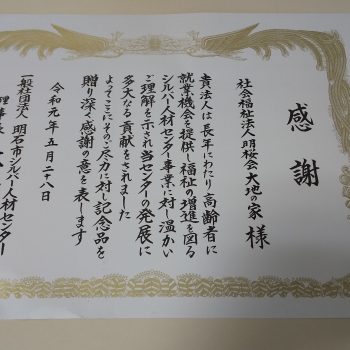 感謝
社会福祉法人明桜会大地の家 様
貴法人は長年にわたり高齢者に
就業機会を提供し福祉の増進を図る
シルバー人材センター事業に対し温かい
ご理解を示され当センターの発展に
多大なる貢献をされました
よってここにそのご尽力に対し記念品を
贈り深く感謝の意を表します
令和元年五月二十八日
一般社団法人 明石市シルバー人材センター
理事長